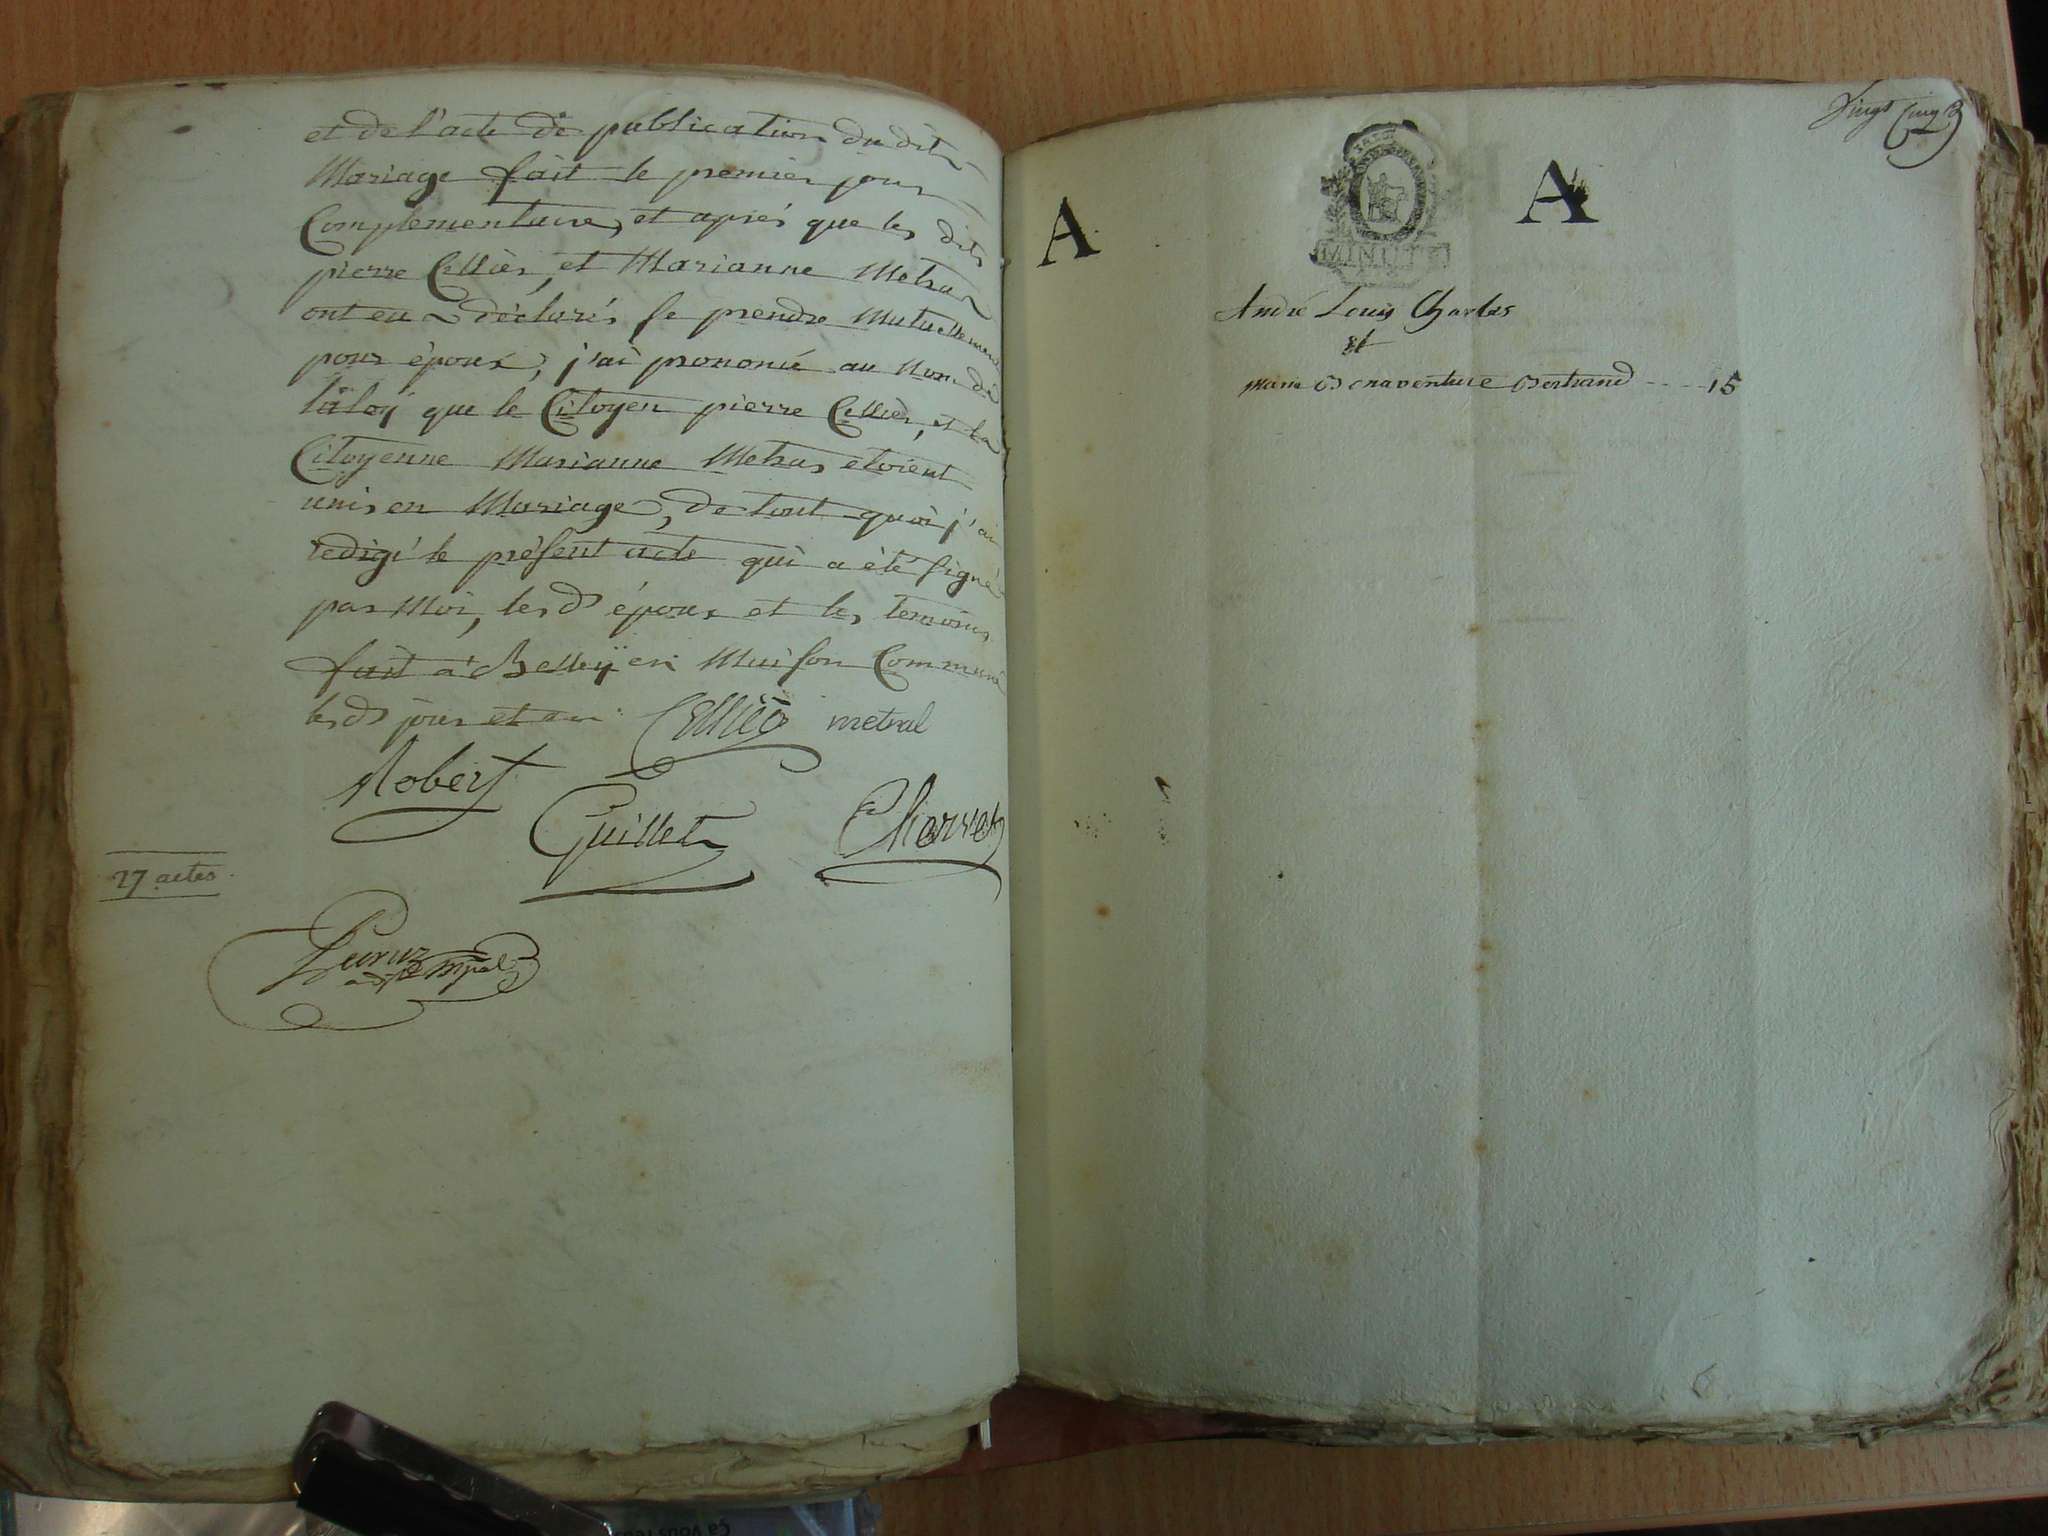 et de l'acte de publication du dit
Mariage fait le premier jour
Complementaire, et aprés que les dits
pierre Cellier, et Marianne Metra
ont eu déclarés se prendre Mutuellement
pour époux, j'ai prononcé au Nom de
la loÿ que le Citoyen pierre Cellier, et la
Citoyenne Marianne Metras etoient
unis en Mariage, de tout quoi j'ai
redigé le présent acte qui a été signé
par Moi, les d époux et les temoins
fait a Belleÿ en Maison Commune
les d jour et an Cellier metral
Robert
Guillet
Charvet
27 actes
Mpal
Vingt Cinq
A A
MINUTE
André Louis Charles
et
Marie Bonaventure Bertrand 15